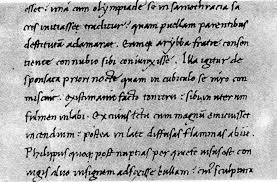 esset: una cum olympiade se in samothracia sa
cris initiasset traditur: quam puellam parentibus
destitutam adamarat. Eamq; arybba fratre consen
tiente connubio sibi coniunxisse. Illa igitur de
sponsata priori nocte quam in cubiculo se viro com
misceret: existimante facto tonitru: sibi in uterum
fulmen in labi. ex eius ictu cum magnũ emicuisset
incendium: postea in late diffusas flammas abiisse.
Philippus quoq; post nuptias per quietẽ visus est con
iugis alvo insignem adfixisse bullam: cui sculptura